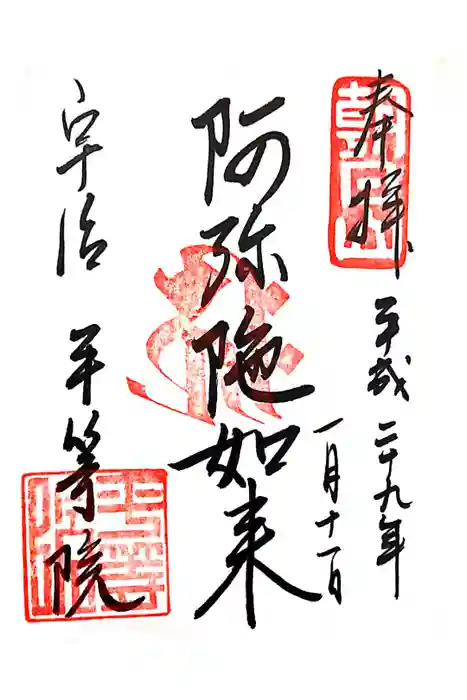 奉拝
平成二十九年
一月十一日
阿弥陀如来
宇治 平等院